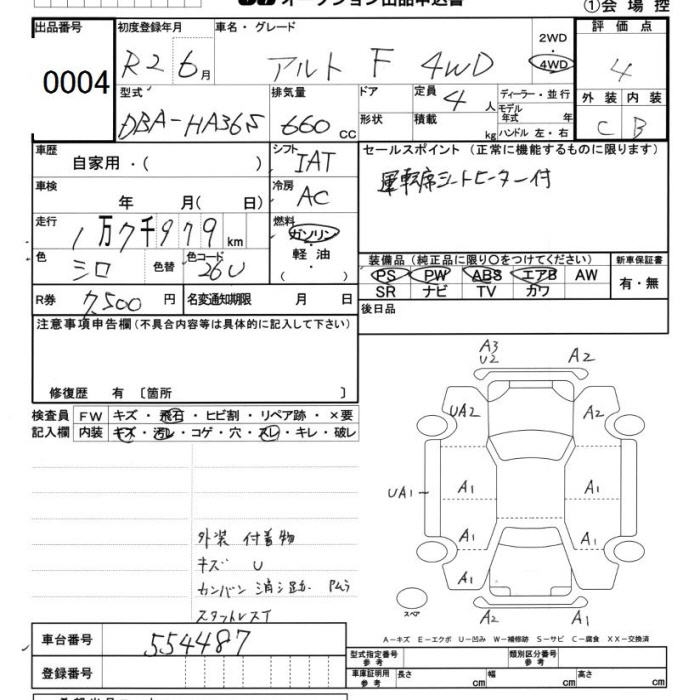 オークション出品申込書 ①会場控
出品番号 初度登録年月 車名・グレード 評価点
0004 R2 6月 アルト F 4WD 2WD・4WD 4
型式 排気量 ドア 定員 4人 ディーラー・並行 外装 内装
DBA-HA36S 660cc 形状 積載 kg モデル年式 年 ハンドル 左・右 C B
車歴 シフト セールスポイント (正常に機能するものに限ります)
自家用・( ) IAT
車検 冷房 運転席シートヒーター付
年 月( 日) AC
走行 燃料
1万7千979km ガソリン
色 色替 色コード ・軽油 装備品(純正品に限り〇をつけてください) 新車保証書
シロ 26U ( ) PS PW ABS エアB AW 有・無
R券 7,500円 名変通知期限 月 日 SR ナビ TV カワ
注意事項申告欄(不具合内容等は具体的に記入して下さい) 後日品
修復歴 有 〔箇所 〕
検査員 FW キズ・飛石・ヒビ割・リペア跡・×要
記入欄 内装 キズ・汚レ・コゲ・穴・スレ・キレ・破レ
A3
U2 A2
UA2 A2
UA1 A1 A1
A1 A1
A1
A2 A1
スペア
外装 付着物
キズ U
カンバン消シ跡
スタットレス
A−キズ E−エクボ U−凹み W−補修跡 S−サビ C−腐食 XX−交換済
車台番号 554487 型式指定番号 参考 類別区分番号 参考
登録番号 車庫証明用 参考 長さ cm 幅 cm 高さ cm